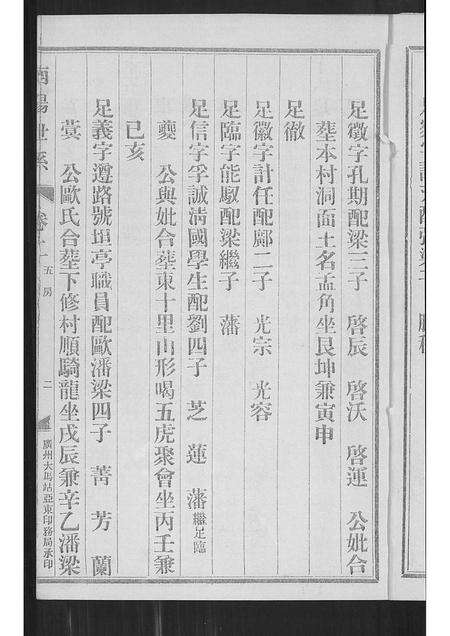 足徵字孔期配梁三子 啓辰 啓沃 啓運 公妣合
塟本村洞面土名孟角坐艮坤兼寅申
足徹
足徽字計任配鄺二子 光宗 光容
足臨字能馭配梁繼子 藩
足信字孚誠淸國學生配劉四子 芝 蓮 藩繼足臨
夔 公與妣合塟東十里山形喝五虎聚會坐丙壬兼
巳亥
足義字遵路號埍亭職員配歐潘梁四子 菁 芳 蘭
蓂 公歐氏合塟下修村順騎龍坐戌辰兼辛乙潘梁
世系
卷十一
五房
二
廣州大馬站亞東印務局承印